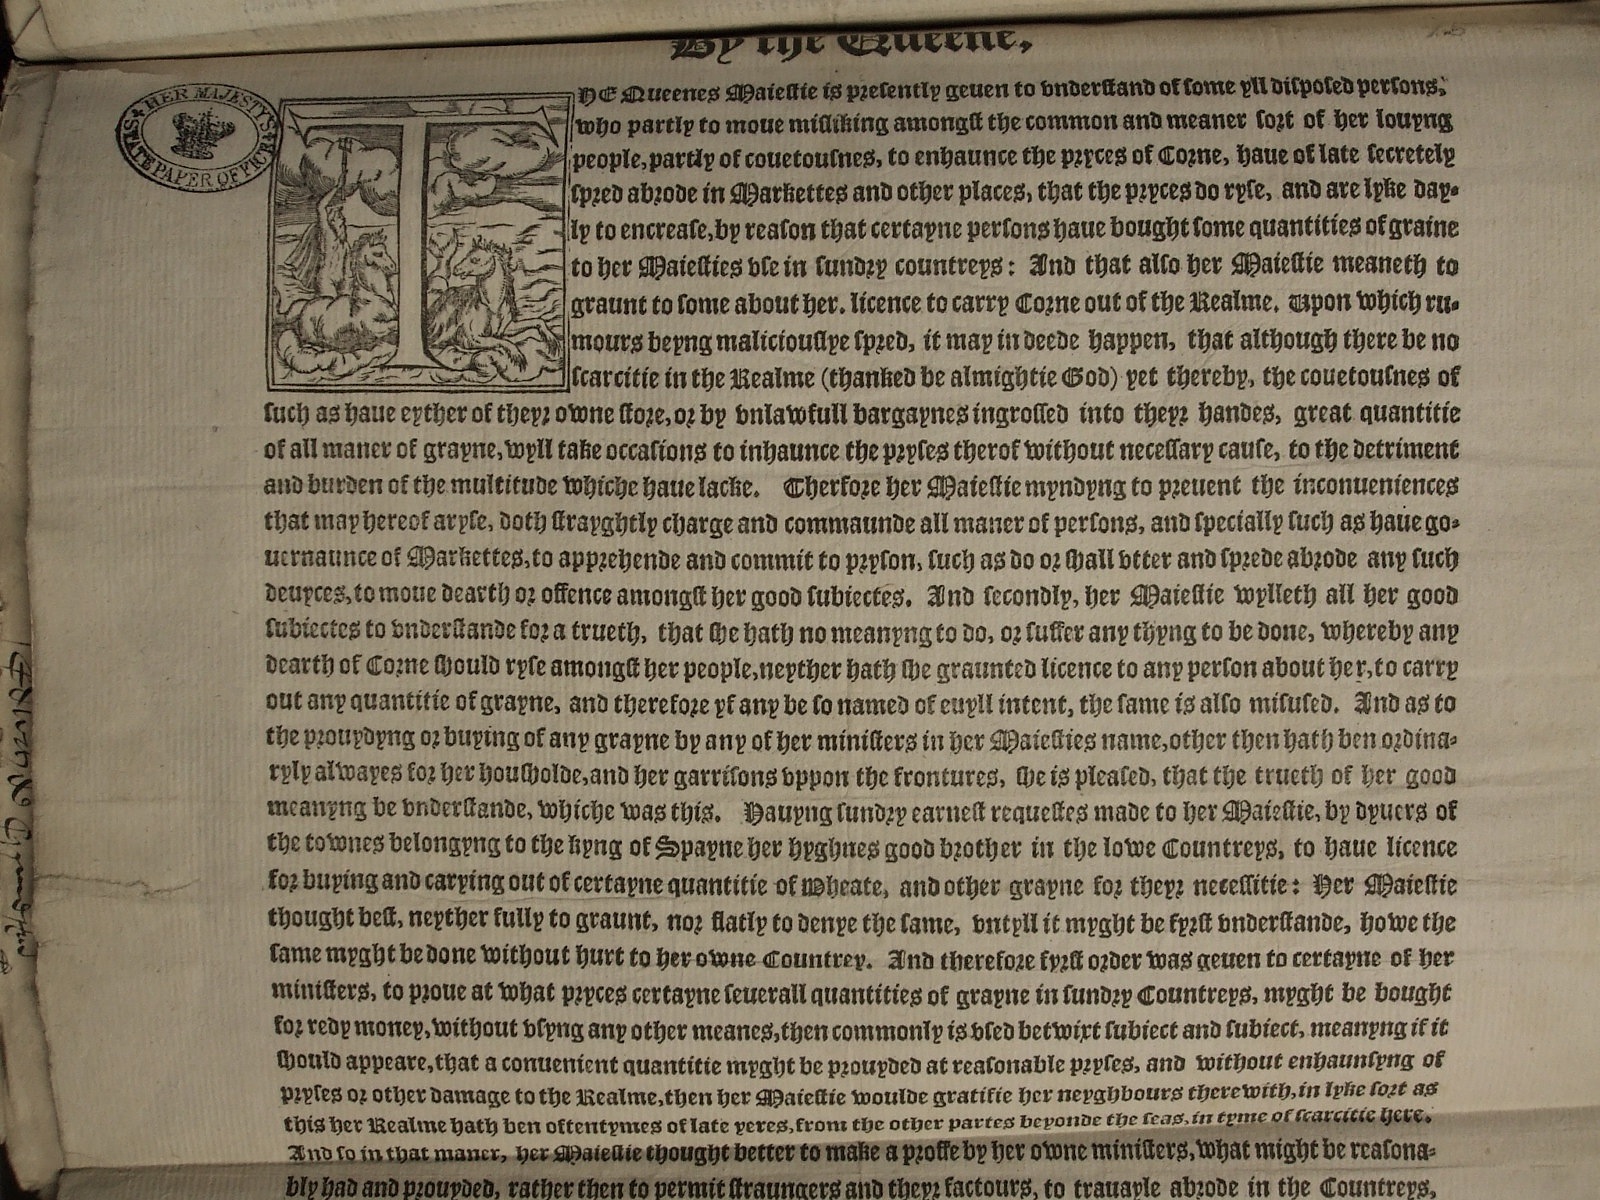 By the Queene,
HER MAJESTY'S STATE PAPER OFFICE
THE Queenes Maiestie is presently geuen to vnderstand of some yll disposed persons,
who partly to moue misliking amongst the common and meaner sort of her louyng
people, partly of couetousnes, to enhaunce the pryces of Corne, haue of late secretely
spred abrode in Markettes and other places, that the pryces do ryse, and are lyke day-
ly to encrease, by reason that certayne persons haue bought some quantities of graine
to her Maiesties vse in sundry countreys: And that also her Maiestie meaneth to
graunt to some about her. licence to carry Corne out of the Realme. Upon which ru-
mours beyng maliciouslye spred, it may in deede happen, that although there be no
scarcitie in the Realme (thanked be almightie God) yet thereby, the couetousnes of
such as haue eyther of theyr owne store, or by vnlawfull bargaynes ingrossed into theyr handes, great quantitie
of all maner of grayne, wyll take occasions to inhaunce the pryses therof without necessary cause, to the detriment
and burden of the multitude whiche haue lacke. Therfore her Maiestie myndyng to preuent the inconueniences
that may hereof aryse, doth strayghtly charge and commaunde all maner of persons, and specially such as haue go-
uernaunce of Markettes, to apprehende and commit to pryson, such as do or shall vtter and sprede abrode any such
deuyces, to moue dearth or offence amongst her good subiectes. And secondly, her Maiestie wylleth all her good
subiectes to vnderstande for a trueth, that she hath no meanyng to do, or suffer any thyng to be done, whereby any
dearth of Corne should ryse amongst her people, neyther hath she graunted licence to any person about her, to carry
out any quantitie of grayne, and therefore yf any be so named of euyll intent, the same is also misused. And as to
the prouydyng or buying of any grayne by any of her ministers in her Maiesties name, other then hath ben ordina-
ryly alwayes for her housholde, and her garrisons vppon the frontures, she is pleased, that the trueth of her good
meanyng be vnderstande, whiche was this. Hauyng sundry earnest requestes made to her Maiestie, by dyuers of
the townes belongyng to the kyng of Spayne her hyghnes good brother in the lowe Countreys, to haue licence
for buying and carying out of certayne quantitie of Wheate, and other grayne for theyr necessitie: Her Maiestie
thought best, neyther fully to graunt, nor flatly to denye the same, vntyll it myght be fyrst vnderstande, howe the
same myght be done without hurt to her owne Countrey. And therefore fyrst order was geuen to certayne of her
ministers, to proue at what pryces certayne seuerall quantities of grayne in sundry Countreys, myght be bought
for redy money, without vsyng any other meanes, then commonly is vsed betwixt subiect and subiect, meanyng if it
should appeare, that a conuenient quantitie myght be prouyded at reasonable pryses, and without enhaunsyng of
pryses or other damage to the Realme, then her Maiestie woulde gratifie her neyghbours therewith, in lyke sort as
this her Realme hath ben oftentymes of late yeres, from the other partes beyonde the seas, in tyme of scarcitie here.
And so in that maner, her Maiestie thought better to make a proffe by her owne ministers, what might be reasona-
bly had and prouyded, rather then to permit straungers and theyr factours, to trauayle abrode in the Countreys,